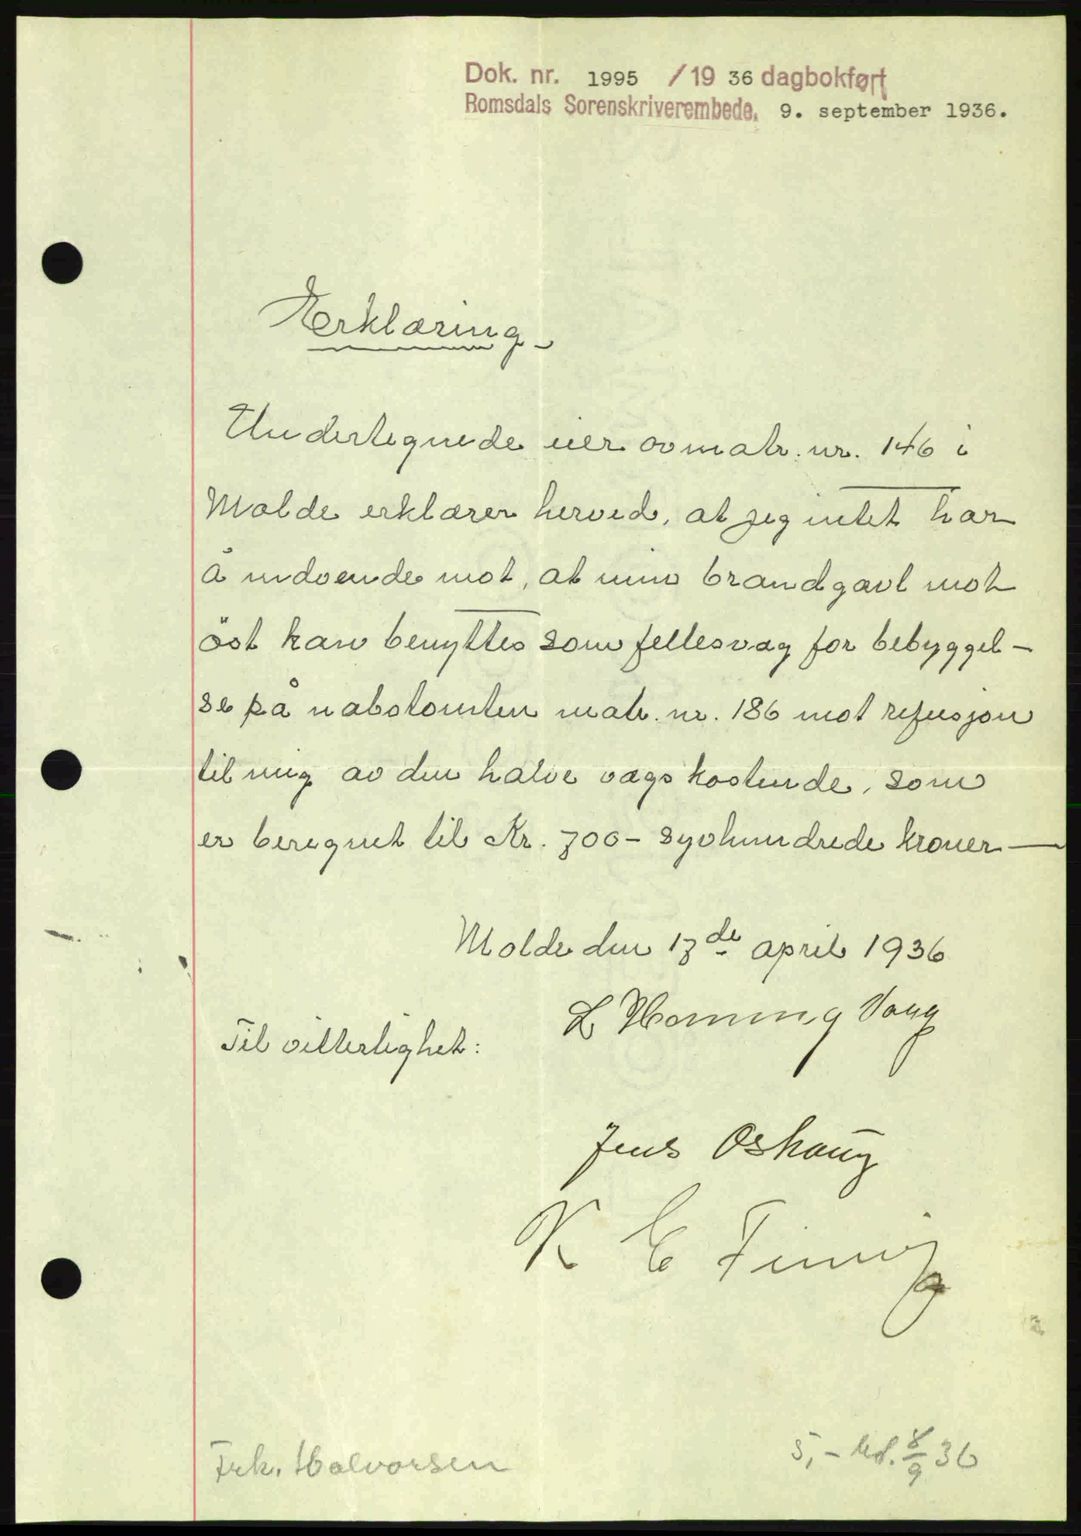 Dok. nr. 1995 /19 36 dagbokført
Romsdals Sorenskriverembede, 9. september 1936.
Erklæring.
Undertegnede eier av matr. nr. 146 i
Molde erklærer herved, at jeg intet har
å indvende mot, at min brandgavl mot
öst kan benyttes som fellesvæg for bebyggel-
se på nabotomten matr. nr. 186 mot refusjon
til mig av den halve vægs kostende, som
er beregnet til Kr. 700- syvhundrede kroner —
Molde den 17de april 1936
L Hemming Vaag
Til vitterlighet:
Jens Oshaug
K E
Frk. Halvorsen
5,- 8/9 36